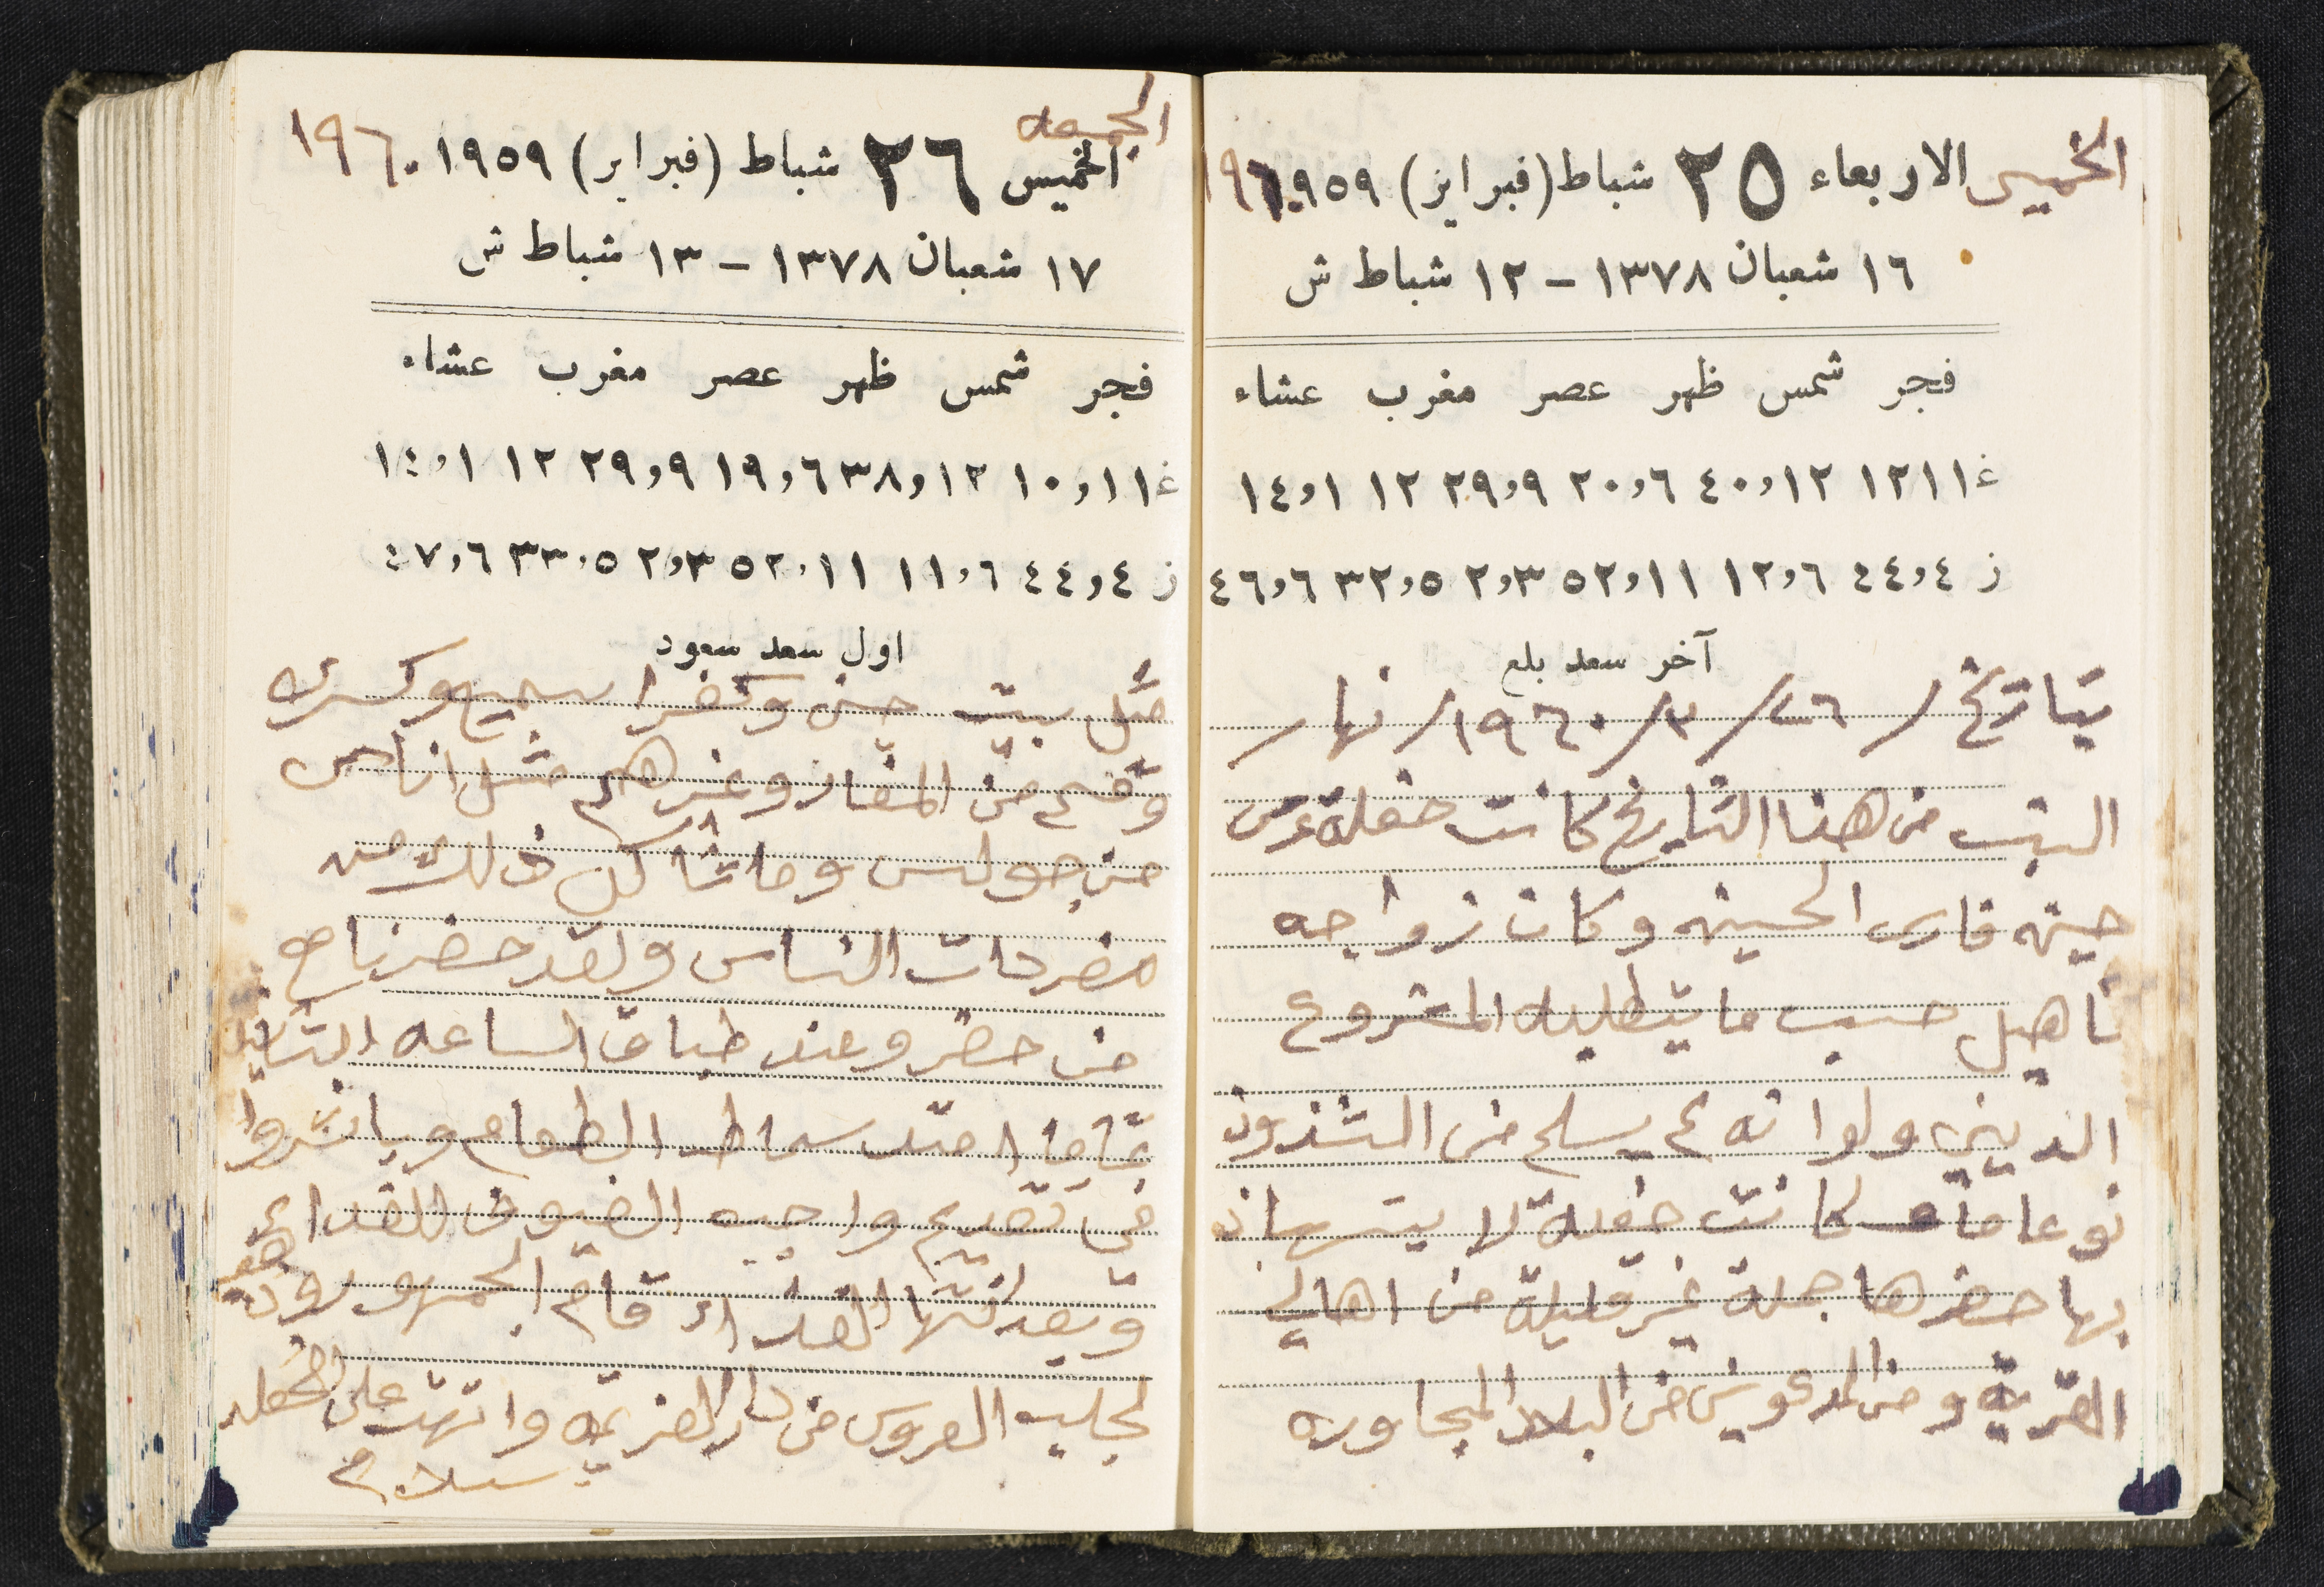 الخميس الاربعاء ٢٥ شباط (فبراير) ١٩٥٩ ١٩٦٠
١٦ شعبان ١٣٧٨ – ١٢ شباط ش
فجر شمس ظهر عصر مغرب عشاء
غ ١١ ١٢ ١٢،٤٠ ٦،٢٠ ٩،٢٩ ١٢ ١،١٤
ز ٤،٤٤ ٦،١٢ ١١،٥٢ ٣،٢ ٥،٣٢ ٦،٤٦
آخر سعد بلع
بتاريخ / ٢٦ / ٣ / ١٩٦٠ / نهار
السبت من هذا التاريخ كانت حفلة عرس
حسنه فارس الحسينه وكان زواجه
تأهيل حسب ما يتطلبه المشروع
الديني ولو انه لم يسلم من الشذوذ
نوعا ما كانت حفلة لا يستهان
بها حضرها جملة غير قليلة من اهالي
القرية ومن المدعوين من البلاد المجاوره
الجمعه
الخميس ٢٦ شباط (فبراير) ١٩٥٩ ١٩٦٠
١٧ شعبان ١٣٧٨ – ١٣ شباط ش
فجر شمس ظهر عصر مغرب عشاء
غ ١١،١٠ ١٢،٣٨ ٦،١٩ ٩،٢٩ ١٢ ١،١٤
ز ٤،٤٤ ٦،١١ ١١،٥٢ ٣،٢ ٥،٣٣ ٦،٤٧
اول سعد سعود
مثل بيت جن وكفر سميع وكسرى
وقسم من المغار وغيرهم مثل اناس
من جولس وما شاكل ذلك من
مفرحات الناس ولقد حضرنا مع
من حضر وعند طباق الساعه الثانيه
تماما امتد سماط الطعام وباشروا
في تقديم واجب الضيوف للغداء
وبعد انتهاء الغداء قام الجمهور
لجلب العروس من دار وانتهت على الحفله
سلام